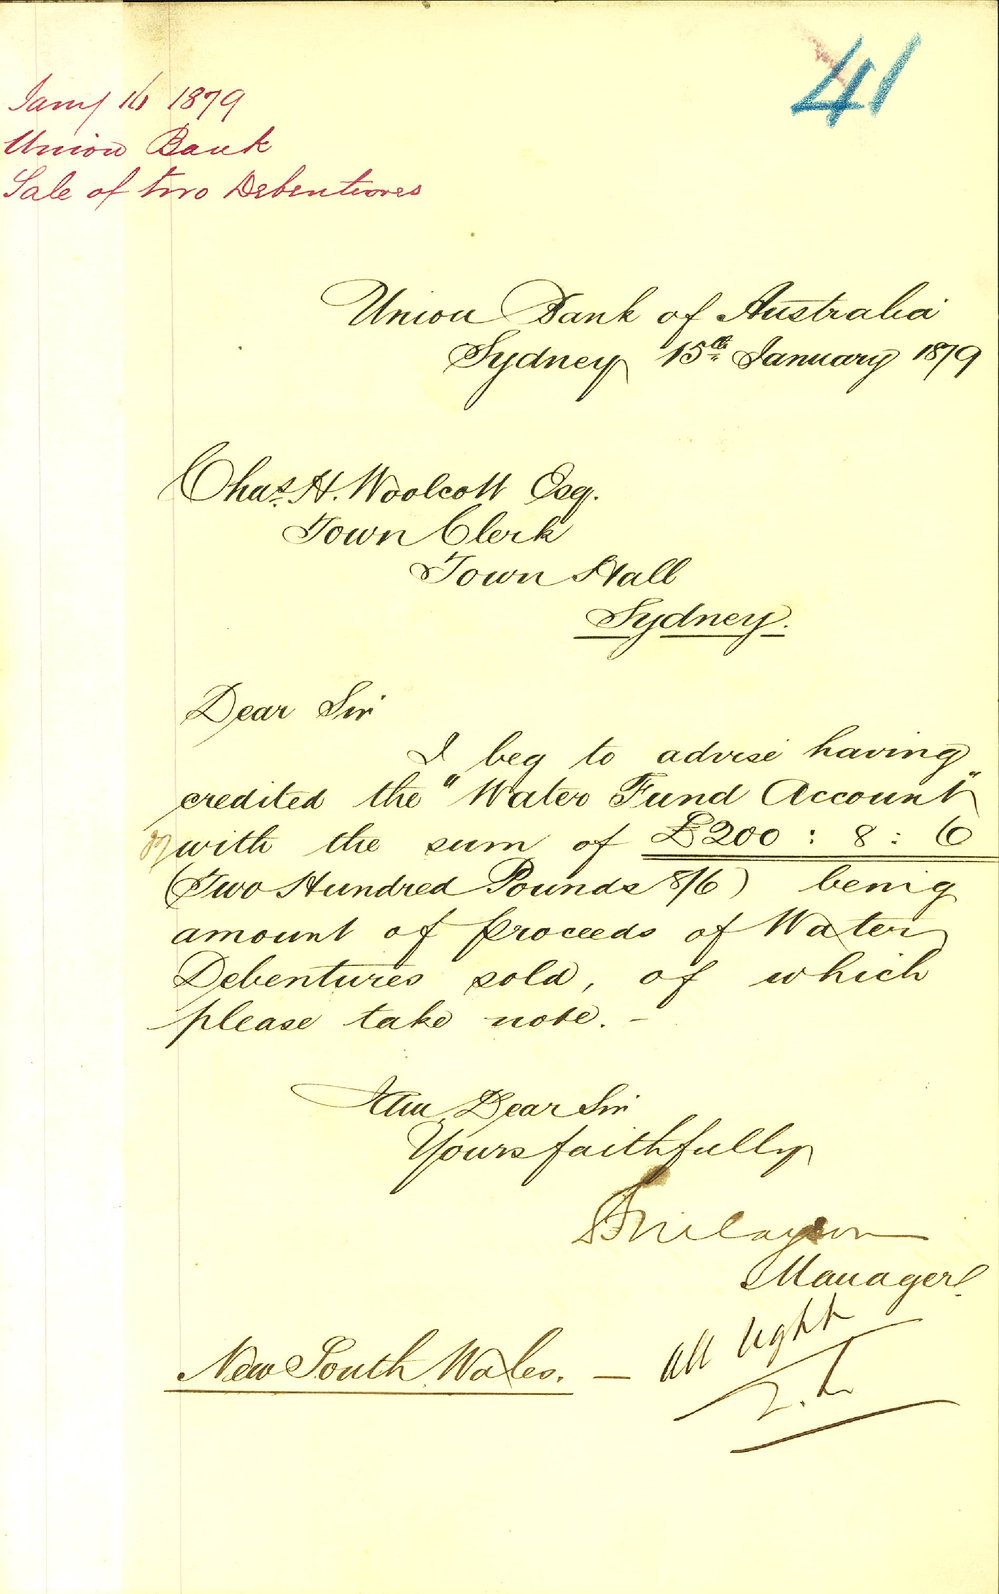 41
Jany 16 1879
Union Bank
Sale of two Debentures
Union Bank of Australia
Sydney 15th January 1879
Chas. H. Woolcott Esq.
Town Clerk
Town Hall
Sydney.
Dear Sir
I beg to advise having
credited the "Water Fund Account"
with the sum of £200 : 8 : 6
(Two Hundred Pounds 8/6) being
amount of proceeds of Water
Debentures sold, of which
please take note. –
I am Dear Sir
Yours faithfully
Manager.
New South Wales. – all right